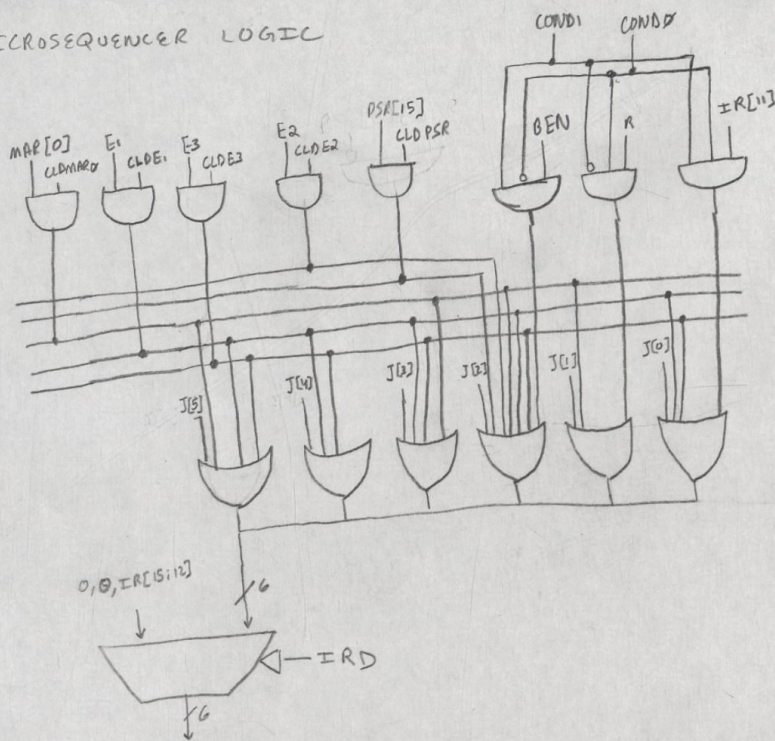 ICROSEQUENCER LOGIC
COND1 CONDØ
MAR[0] CLDMARØ E1 CLDE1 E3 CLDE3 E2 CLDE2 PSR[15] CLDPSR BEN R IR[11]
J[5] J[4] J[3] J[2] J[1] J[0]
0,0,IR[15:12]
6
IRD
6